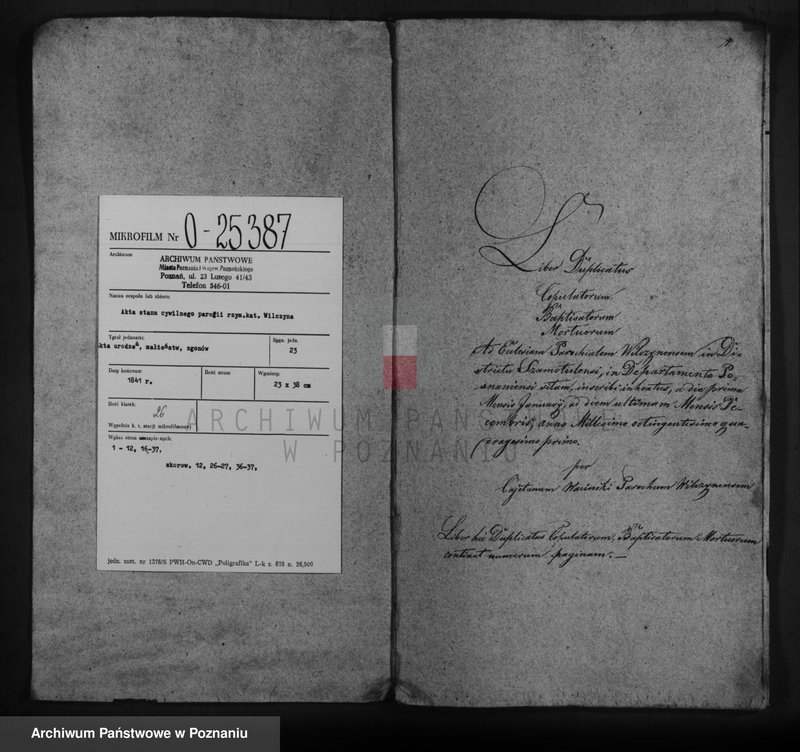 MIKROFILM Nr O-25387
Archiwum
ARCHIWUM PAŃSTWOWE
Miasta Poznania i Wojew. Poznańskiego
Poznań, ul. 23 Lutego 41/43
Telefon 546-01
Nazwa zespołu lub zbioru:
Akta stanu cywilnego parafii rzym.kat. Wilczyna
Tytuł jednostki:
kta urodzeń, małżeństw, zgonów
Sygn. jedn.
23
Daty końcowe:
1841 r.
Ilość stron:
Wymiary:
23 x 38 cm
Ilość klatek:
26
Wypełnia k. t. stacji mikrofilmowej
Wykaz stron
1 - 12, 16-37.
skorow. 12, 26-27, 36-37.
jedn. zam. nr 1276/S PWH-On-CWD „Poligrafika" Ł-k z. 678 n. 26,500
Liber Duplicatus
Copulatorum
Baptisatorum
Mortuorum
Ad Eclesiam Parochialem Wilczynensem in Di-
strictu Szamotulensi, in Departamento Po-
snaniensi sitam, inscribi inhoatus, a dia prima
Mensis January, ad diem ultimam Mensis De-
cembris, anno Millesimo octingentesimo qua-
dragesimo primo.
per
Cajetanum Parochum Wilczynensem
Liber hic Duplicatus Copulatorum, Baptisatorum Mortuorum
continet numerum paginam. —
ARCHIWUM PAŃSTWOWE
W POZNANIU
Archiwum Państwowe w Poznaniu